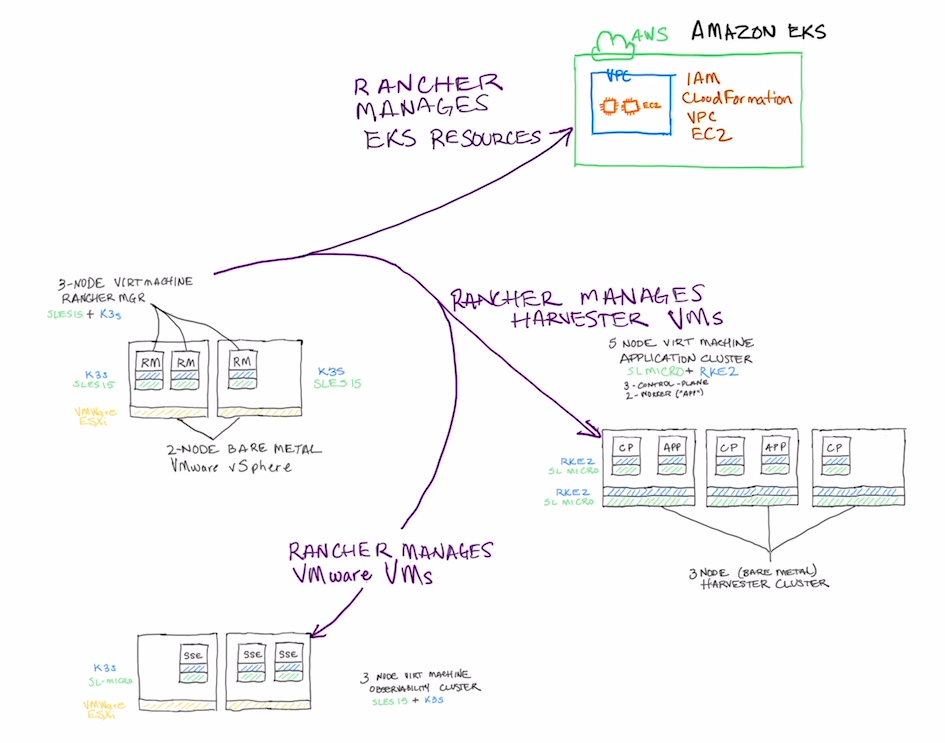 AWS
AMAZON EKS
VPC
EC2
IAM
CloudFormation
VPC
EC2
RANCHER
MANAGES
EKS RESOURCES
3-NODE VIRT MACHINE
RANCHER MGR
SLES15 + K3s
RM
RM
RM
K3S
SLES15
VMWare
ESXi
K3S
SLES15
2-NODE BARE METAL
VMware vSphere
RANCHER MANAGES
HARVESTER VMs
5 NODE VIRT MACHINE
APPLICATION CLUSTER
SL MICRO + RKE2
3-CONTROL-PLANE
2-WORKER ("APP")
CP
APP
CP
APP
CP
RKE2
SL MICRO
RKE2
SL MICRO
3 NODE (BARE METAL)
HARVESTER CLUSTER
RANCHER MANAGES
VMware VMs
SSE
SSE
SSE
K3S
SL-MICRO
VMWare
ESXi
3 NODE VIRT MACHINE
OBSERVABILITY CLUSTER
SLES15 + K3S